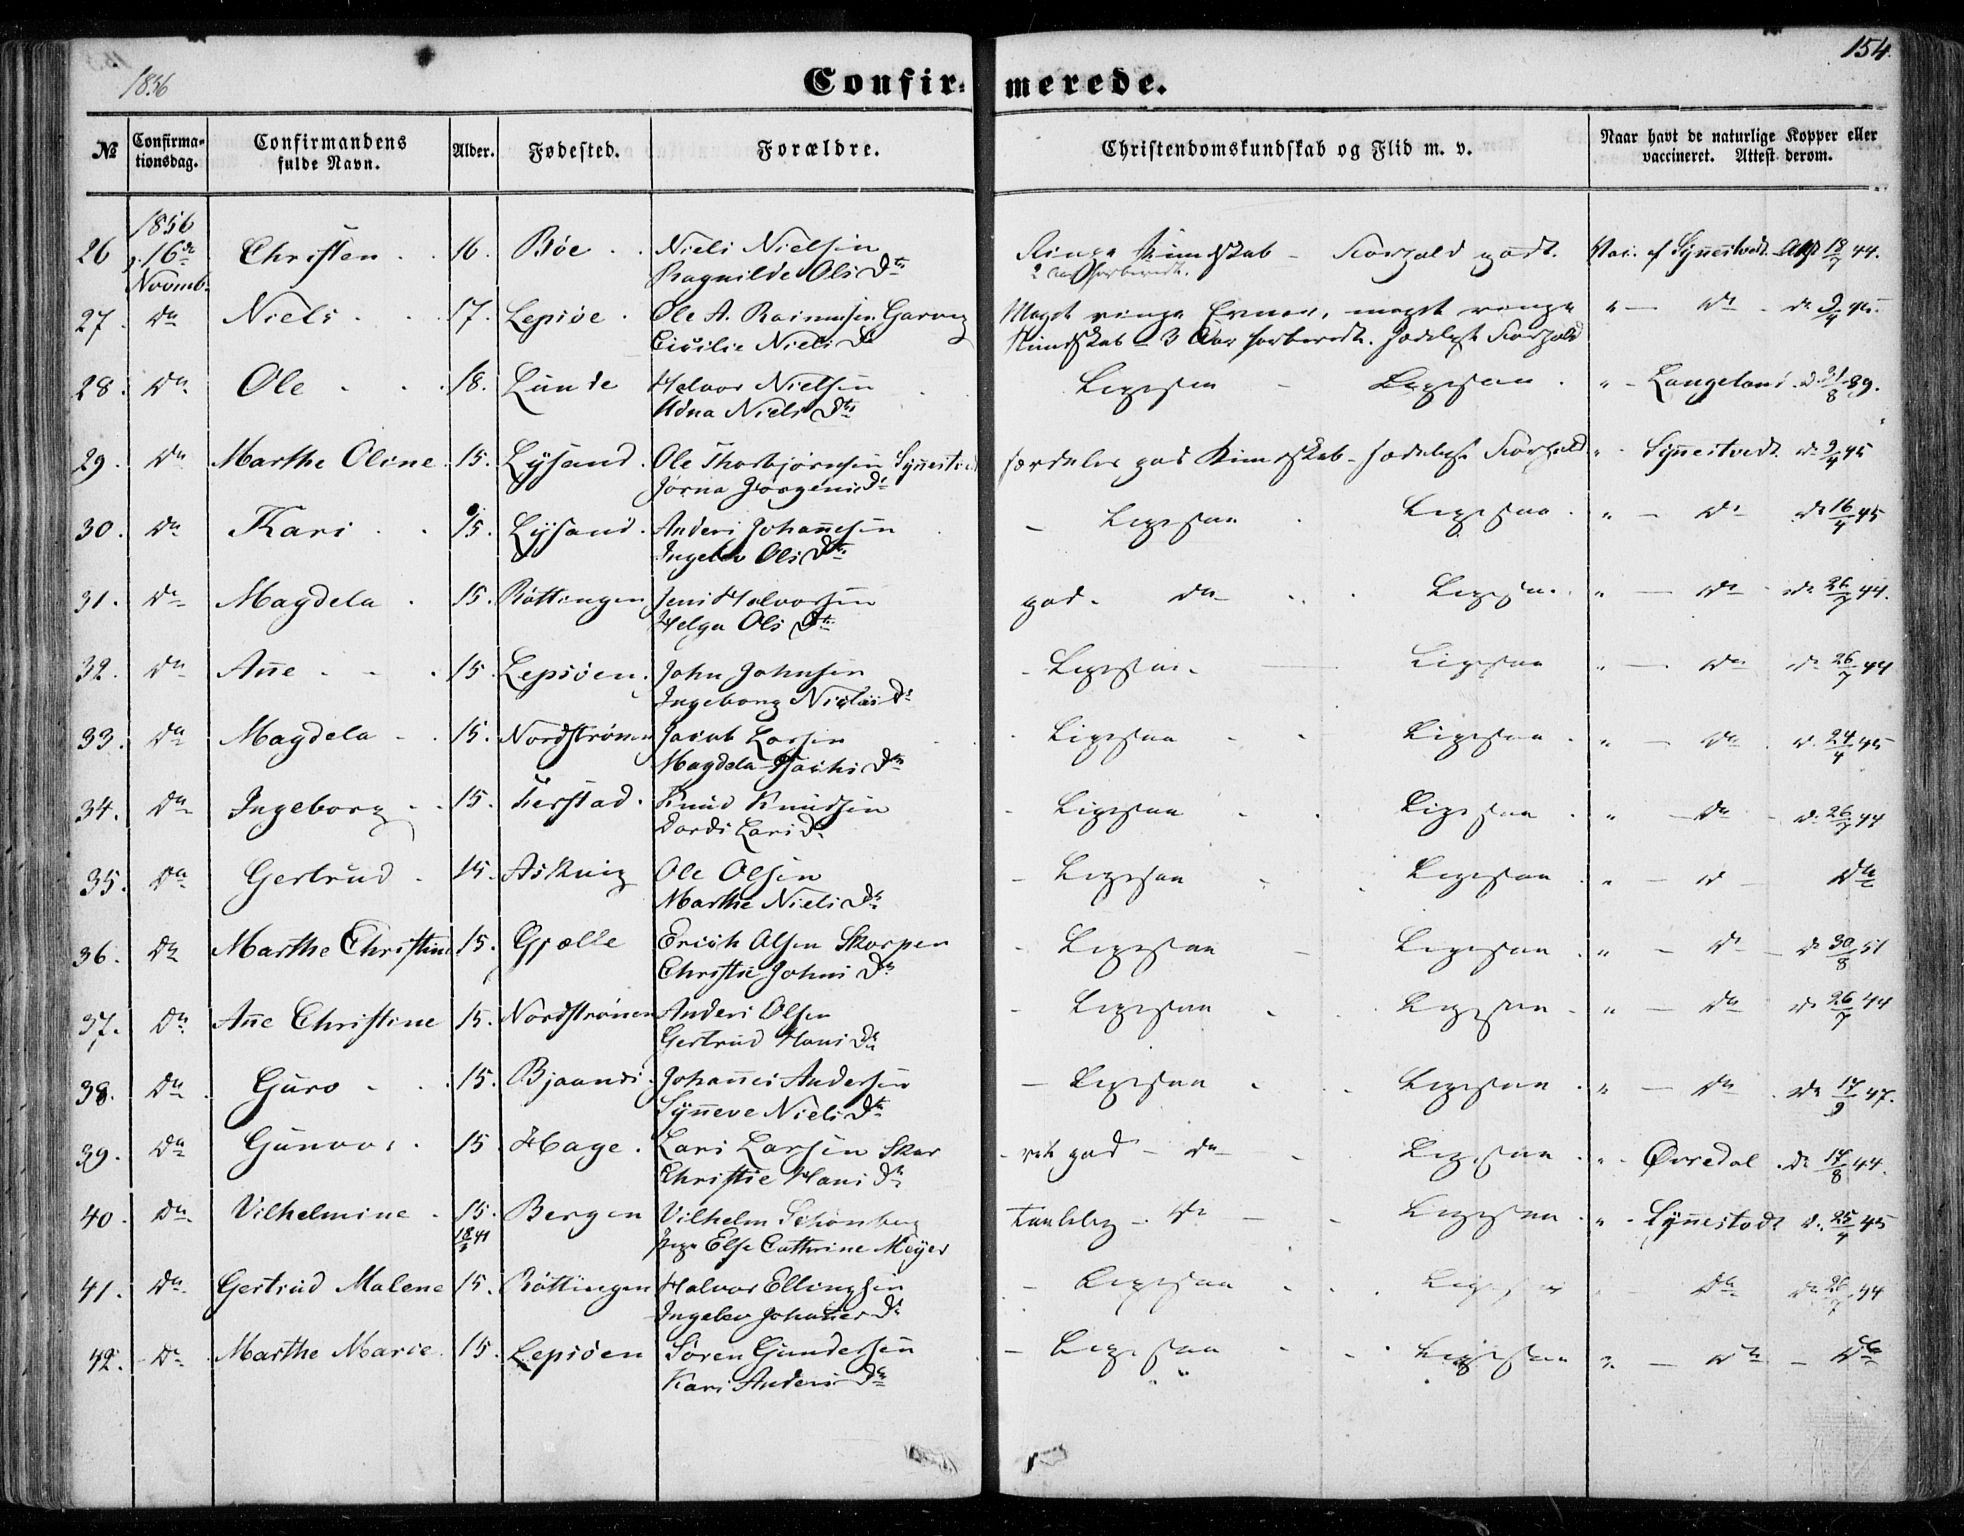 154
1856
Confir= merede.
№ Confirma-tionsdag. Confirmandens fulde Navn. Alder. Fødested. Forældre. Christendomskundskab og Flid m. v. Naar havt de naturlige Kopper eller vaccineret. Attest derom.
1856
26 16de Christen 16. Bøe Niels Nielsen Ringe Kundskab - Forhold godt. Vac. af Synnestvedt Att 18/7 44.
Novmb. Ragnilde Ols Dtr 2 Aar forberedt.
27. Do Niels 17. Lepsøe Ole A. Rasmussen Garvig Meget ringe Evner, meget ringe " - Do - d. 9/4 45.
Cicilie Niels Dr Kundskab - 3 Aar forberedt. Sædeligt Forhold
28. Do Ole 18. Lunde Halvor Nielsen Ligesaa - Ligesaa " - Langeland d. 31/8 39.
Udna Niels Dtr
29. Do Marthe Oline 15. Lysand Ole Thorbjørnsen Synnestved særdeles god Kundskab - sædeligt Forhold " Synnestvedt d. 9/4 45
Jørna Jørgens Dr
30. Do Kari 15. Lysand Anders Johannesen - Ligesaa Ligesaa " - Do d. 16/4 45
Ingebor Ols Dtr
31. Do Magdela 15. Røttingen Jens Halvorsen god. Do Ligesaa " - Do - d. 26/7 44.
Helga Ols Dtr
32. Do Anne 15. Lepsøen John Johnsen - Ligesaa Ligesaa " - Do d. 26/7 44
Ingeborg Niclas Dr
33. Do Magdela 15. Nordstrønen Jacob Larsen - Ligesaa Ligesaa " - Do d. 24/4 45
Magdela Dr
34. Do Ingeborg 15. Ferstad Knud Knudsen - Ligesaa Ligesaa " - Do - d. 26/7 44
Dordi Lars Dr
35. Do Gertrud 15. Askvig Ole Olsen - Ligesaa Ligesaa " - D - Do
Marthe Niels Dr
36. Do Marthe Christine 15. Gjælle Erich Olsen Skorpen - Ligesaa - Ligesaa " - Do - d. 30/8 51
Christie Johns Dr
37. Do Anne Christine 15. Nordstrønen Anders Olsen - Ligesaa Ligesaa " - Do d. 26/7 44
Gertrud Hans Dr
38. Do Guro 15. Bjaanæs Johannes Andersen - Ligesaa Ligesaa " - Do d. 17/9 47.
Synneve Niels Dtr
39. Do Gunvor 15 Hage Lars Larsen Skar - ret god - do - Ligesaa " - Øvredal d. 17/8 44.
Christie Hans Dr
40. Do Vilhelmine 15. Bergen Vilhelm Schønberg taalelig - Do - Ligesaa " - Synnestvedt d. 25/4 45
18/3 41 Pige Else Cathrine Meyer
41. Do Gertrud Malene 15. Røttingen Halvor Ellingsen - Ligesaa Ligesaa Do d. 26/7 44
Ingebor Johannes Dr
42. Do Marthe Marie 15. Lepsøen Søren Gundersen - Ligesaa Ligesaa " - Do - Do
Kari Anders Dr